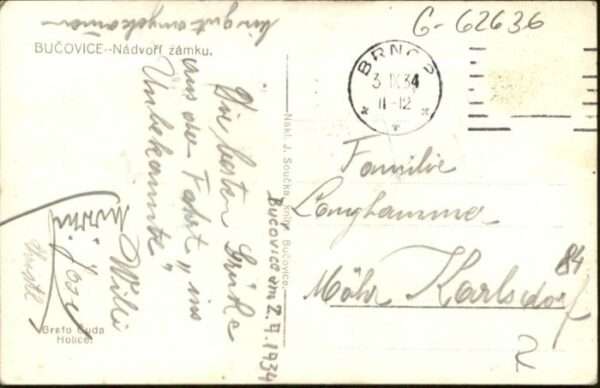 BUČOVICE--Nádvoří zámku.
gut angekommen
Die besten Grüße
aus der Fahrt „ins
Unbekannte"
Willi
Josef
Bučovice am 2.9.1934
Nakl. J. Součka knihy Bučovice.
Breťa Čuda
Holice.
G-62636
BRNO 2
3.IX.34
11-12
Familie
Langhammer
Mähr Karlsdorf
84
2